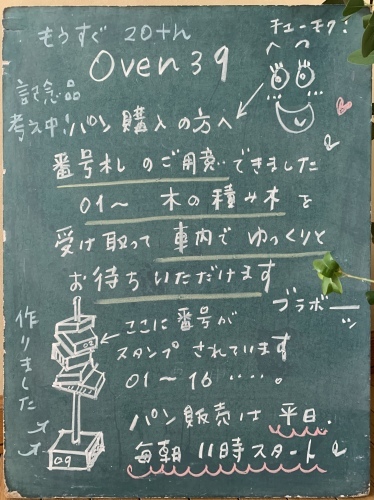 もうすぐ 20th
Oven39
チューモク!
記念品
考え中!
パン購入の方へ
番号札のご用意できました
01〜 木の積み木を
受け取って車内でゆっくりと
お待ちいただけます
ブラボーッ
作りました
ここに番号が
スタンプされています
01〜16‥‥。
09
パン販売は平日
毎朝11時スタート